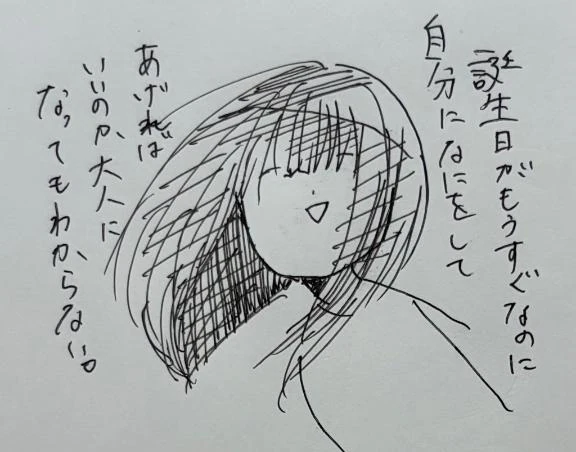 誕生日がもうすぐなのに
自分になにをして
あげれば
いいのか、大人に
なってもわからない。